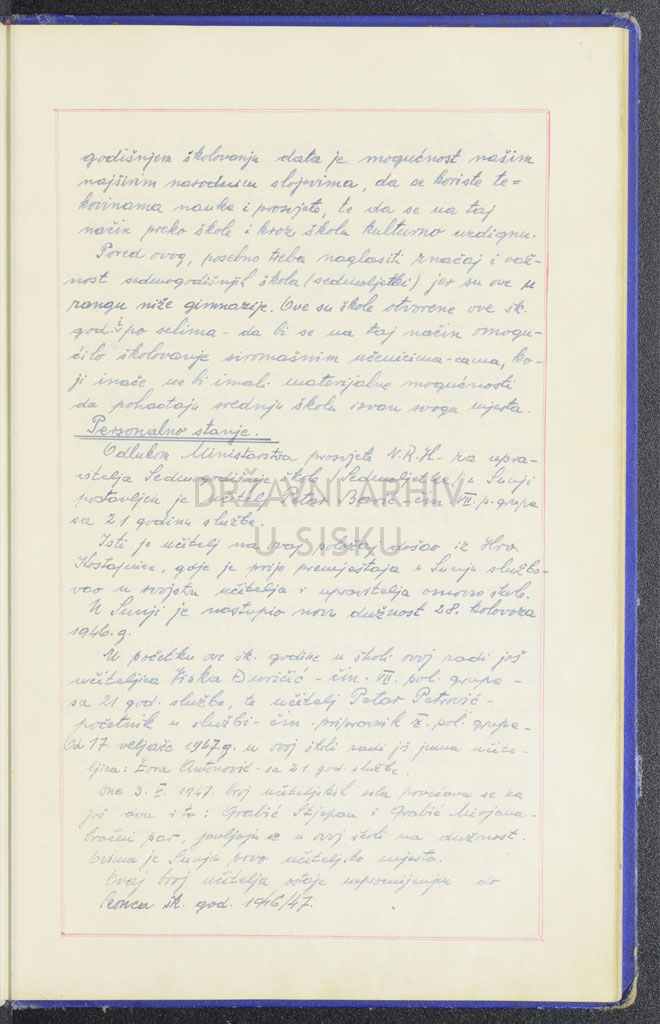 godišnjem školovanju data je mogućnost našim
najširim narodnim slojevima, da se koriste te=
kovinama nauke i prosvjete, te da se na taj
način preko škole i kroz školu kulturno uzdignu.
Pored ovog, posebno treba naglasiti značaj i važ-
nost sedmogodišnjih škola (sedmoljetki) jer su ove u
rangu niže gimnazije. Ove su škole otvorene ove šk.
god. i po selima - da bi se na taj način omogu-
ćilo školovanje siromašnim učenicima-cama, ko-
ji inače ne bi imali materijalne mogućnosti
da pohađaju srednju školu izvan svoga mjesta.
Personalno stanje.
Odlukom Ministarstva prosvjete N.R.H. za upra-
vitelja Sedmogodišnje škole (Sedmoljetke) u Sunji
postavljen je učitelj Petar - čin. VII. p. grupe
sa 21 godinu službe.
Isti je učitelj na ovaj položaj došao iz Hrv.
Kostajnice, gdje je prije premještaja u Sunju službo-
vao u svojstvu učitelja i upravitelja osnovne škole.
U Sunji je nastupio novu dužnost 28. kolovoza
1946. g.
U početku ove šk. godine u školi ovoj radi još
učiteljica Vinka Đuričić - čin. VII. pol. grupe -
sa 21 god. službe, te učitelj Petar Petrović -
početnik u službi - čin. pripravnik IX. pol. grupe.
Od 17 veljače 1947. g. u ovoj školi radi još jedna učite-
ljica: Zora Antonović - sa 21 god. službe.
Dne 3. V. 1947. broj učiteljskih sila povećava se za
još dva i to: Grabić Stjepan i Grabić Mirjana -
bračni par, javljaju se u ovoj školi na dužnost.
Ovima je Sunja prvo učiteljsko mjesto.
Ovaj broj učitelja ostaje nepromijenjen do
konca šk. god. 1946/47.
DRŽAVNI ARHIV
U SISKU